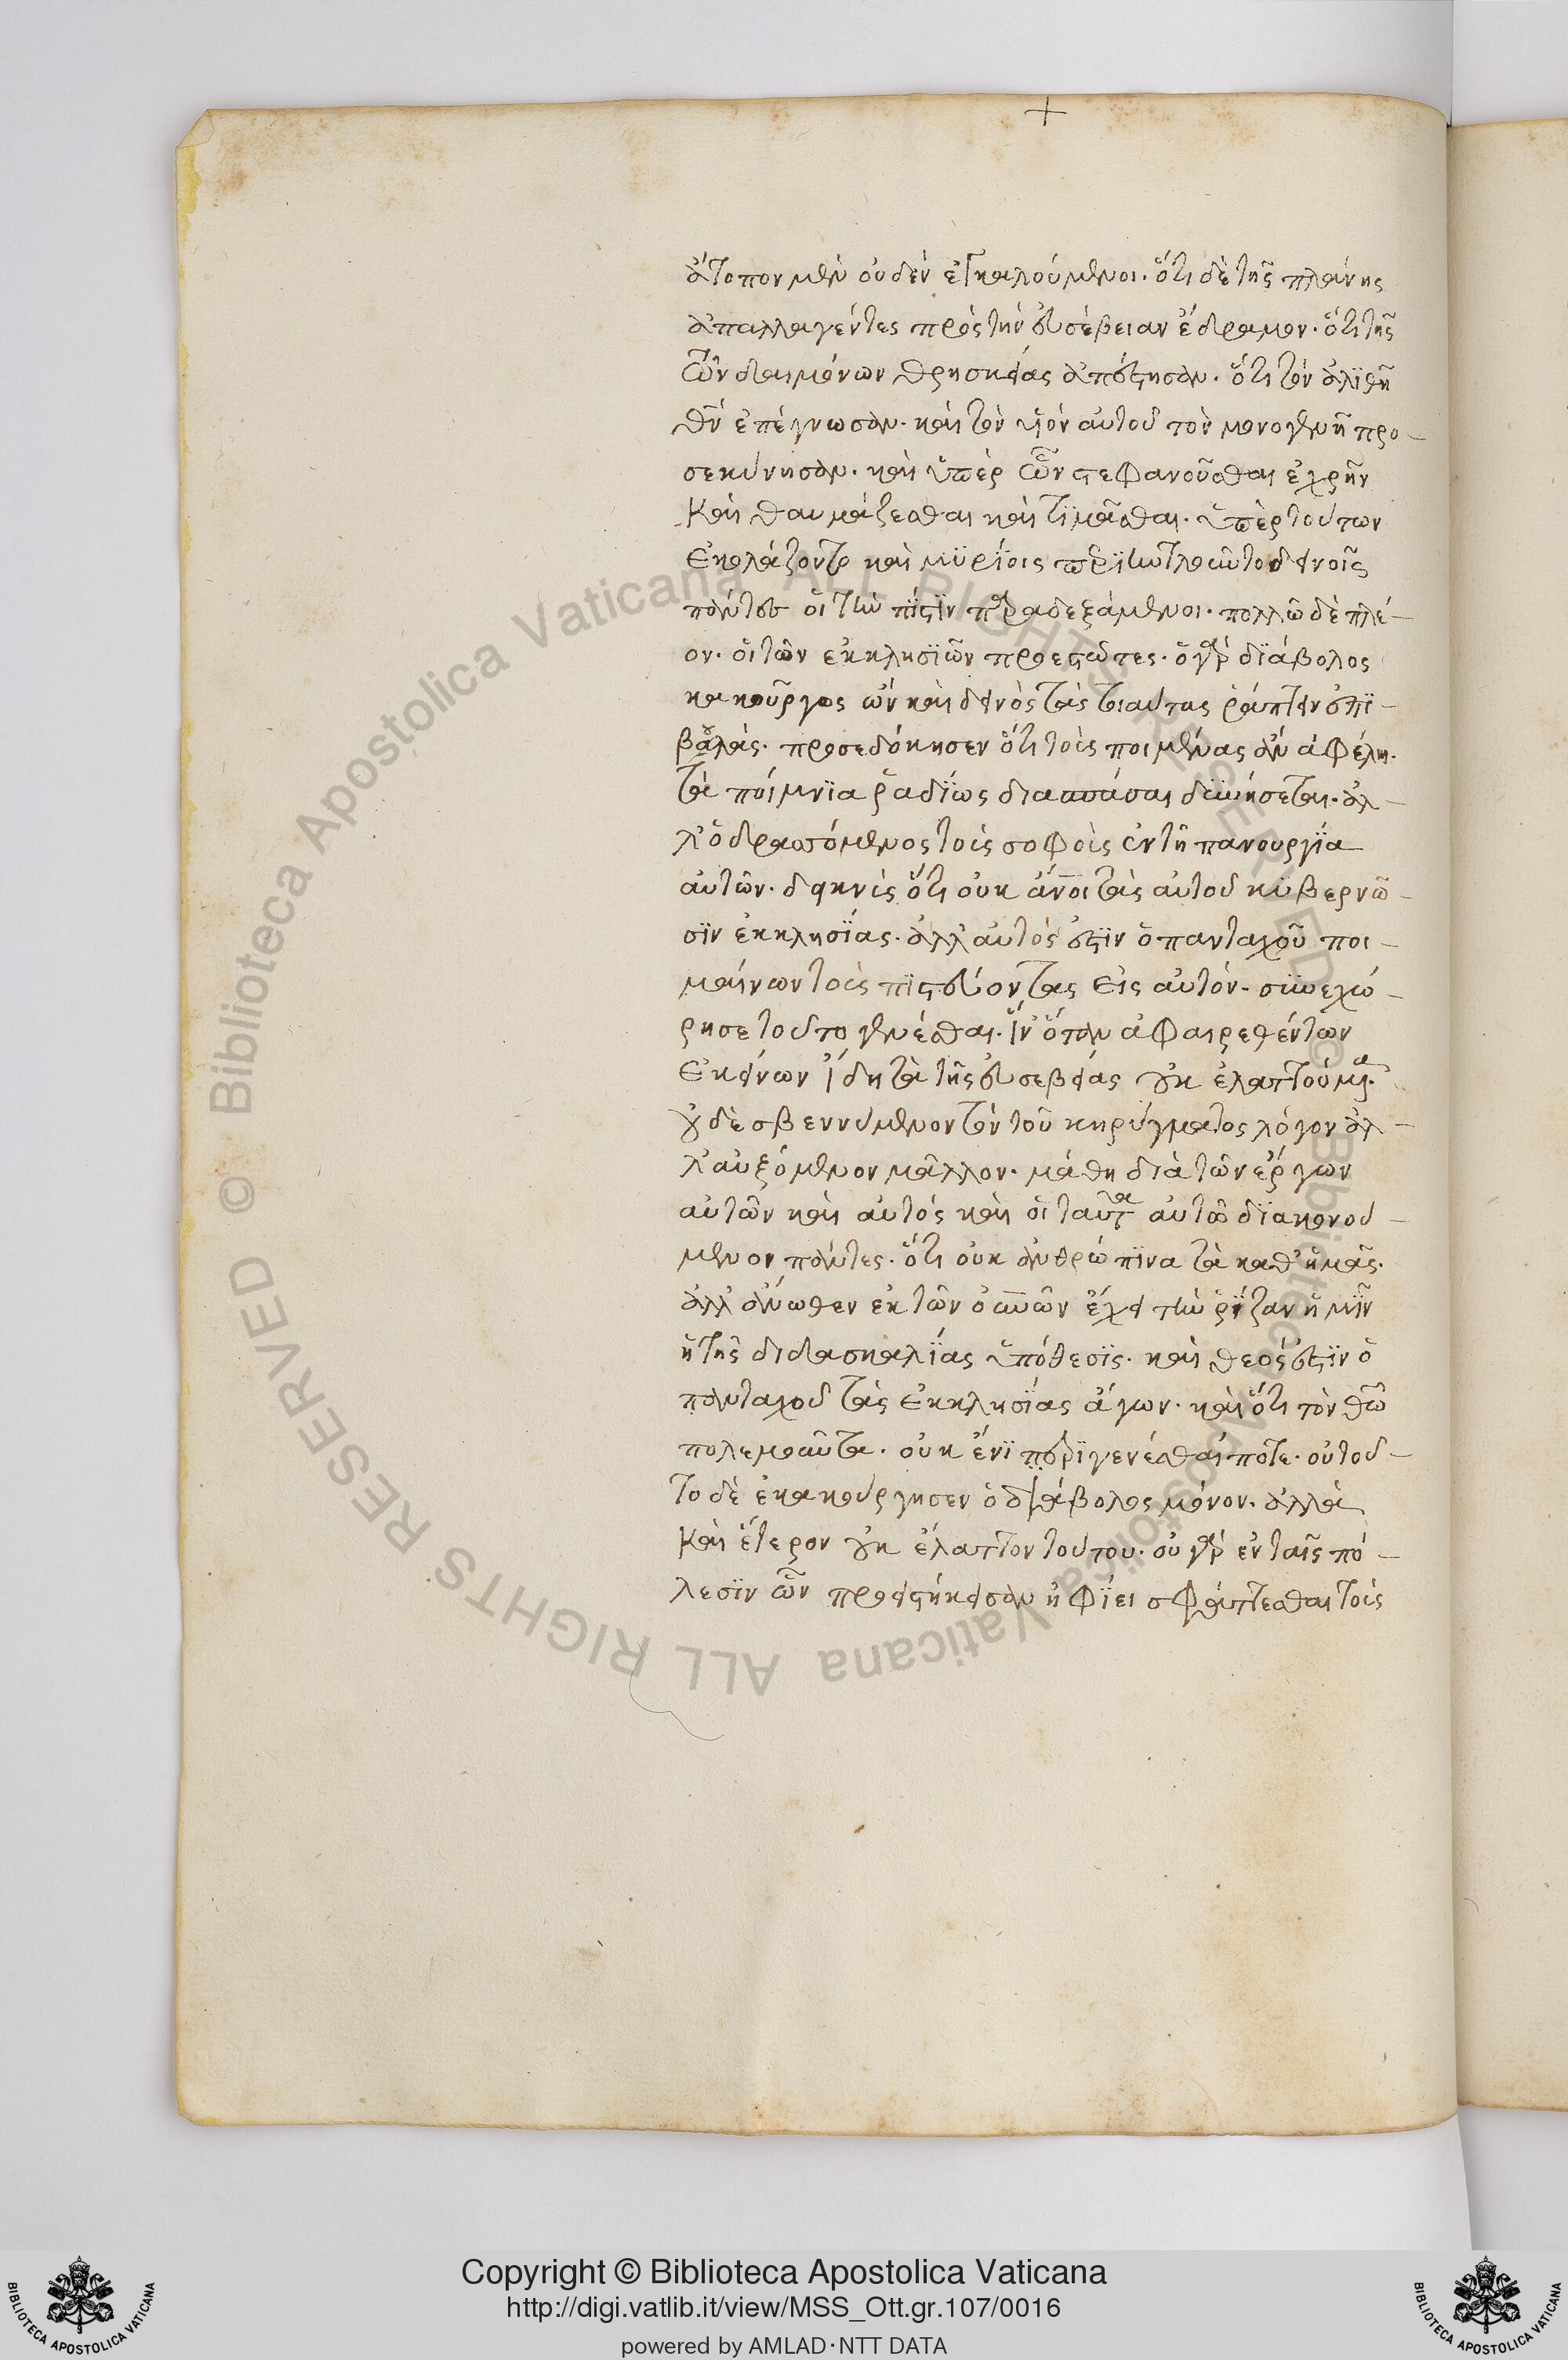 ἄτοπον μὲν οὐδὲν ἐγκαλούμενοι. ὅτι δὲ τῆς πλάνης
ἀπαλλαγέντες πρὸς τὴν εὐσέβειαν ἔδραμον. ὅτι τῆς
τῶν δαιμόνων θρησκείας ἀπέστησαν. ὅτι τὸν ἀλϊθῆ
θν̄ ἐπέγνωσαν. καὶ τὸν υἱὸν αὐτοῦ τὸν μονογενῆ προ-
σεκύνησαν. καὶ ὑπὲρ ὧν στεφανοῦσθαι ἐχρῆν
καὶ θαυμάζεσθαι καὶ τϊμᾶσθαι. ὑπὲρ τούτων
ἐκολάζοντο καὶ μϋρίοις περιεβάλλοντο δεινοῖς
πάντες οἱ τὴν πίστϊν παραδεξάμενοι. πολλῶ δὲ πλέ-
ον. οἱ τῶν ἐκκλησϊῶν προεστῶτες. ὁ γὰρ διάβολος
κακοῦργος ὢν καὶ δεινὸς τὰς τοιαύτας ῥάπτειν ἐπϊ-
βουλὰς. προσεδόκησεν ὅτι τοὺς ποιμένας ἂν ἀφέλη.
τὰ ποίμνϊα ῥαδίως διασπάσαι δϋνήσεται. ἀλ-
λ' ὁ δρασσόμενος τοὺς σοφοὺς ἐν τῆ πανουργία
αὐτῶν. δεικνὺς ὅτι οὐκ ἄν̄οι τὰς αὐτοῦ κϋβερνῶ-
σϊν ἐκκλησίας. ἀλλ' αὐτός ἐστϊν ὁ πανταχοῦ ποι-
μαίνων τοὺς πϊστεύοντας εἰς αὐτόν. σϋνεχώ-
ρησε τοῦτο γενέσθαι. ἵν' ὅταν ἀφαιρεθέντων
ἐκείνων ἴδη τὰ τῆς εὐσεβείας οὐκ ἐλαττούμενα.
οὐδὲ σβεννύμενον τὸν τοῦ κηρύγματος λόγον ἀλ-
λ' αὐξόμενον μᾶλλον. μάθη διὰ τῶν ἔργων
αὐτῶν καὶ αὐτὸς καὶ οἱ ταῦτα αὐτῶ διακονού-
μενον πάντες. ὅτι οὐκ ἀνθρώπϊνα τὰ καθ' ἡμᾶς.
ἀλλ' ἄνωθεν ἐκ τῶν οὐν̄ῶν ἔχει τὴν ῥίζαν ἡμῖν
ἡ τῆς διδασκαλίας ὑπόθεσϊς. καὶ θεός ἐστϊν ὁ
πανταχοῦ τὰς ἐκκλησίας ἄγων. καὶ ὅτι τὸν θω̄
πολεμοῦντα. οὐκ ἔνϊ περιγενέσθαι ποτε. οὐ τοῦ-
το δὲ ἐκακούργησεν ὁ διάβολος μόνον. ἀλλὰ
καὶ ἕτερον οὐκ ἔλαττον τούτου. οὐ γὰρ ἐν ταῖς πό-
λεσϊν ὧν προειστήκεισαν ἠφίει σφάττεσθαι τοὺς
Copyright © Biblioteca Apostolica Vaticana
http://digi.vatlib.it/view/MSS_Ott.gr.107/0016
powered by AMLAD·NTT DATA
BIBLIOTECA APOSTOLICA VATICANA
BIBLIOTECA APOSTOLICA VATICANA
© Biblioteca Apostolica Vaticana ALL RIGHTS RESERVED © Biblioteca Apostolica Vaticana ALL RIGHTS RESERVED